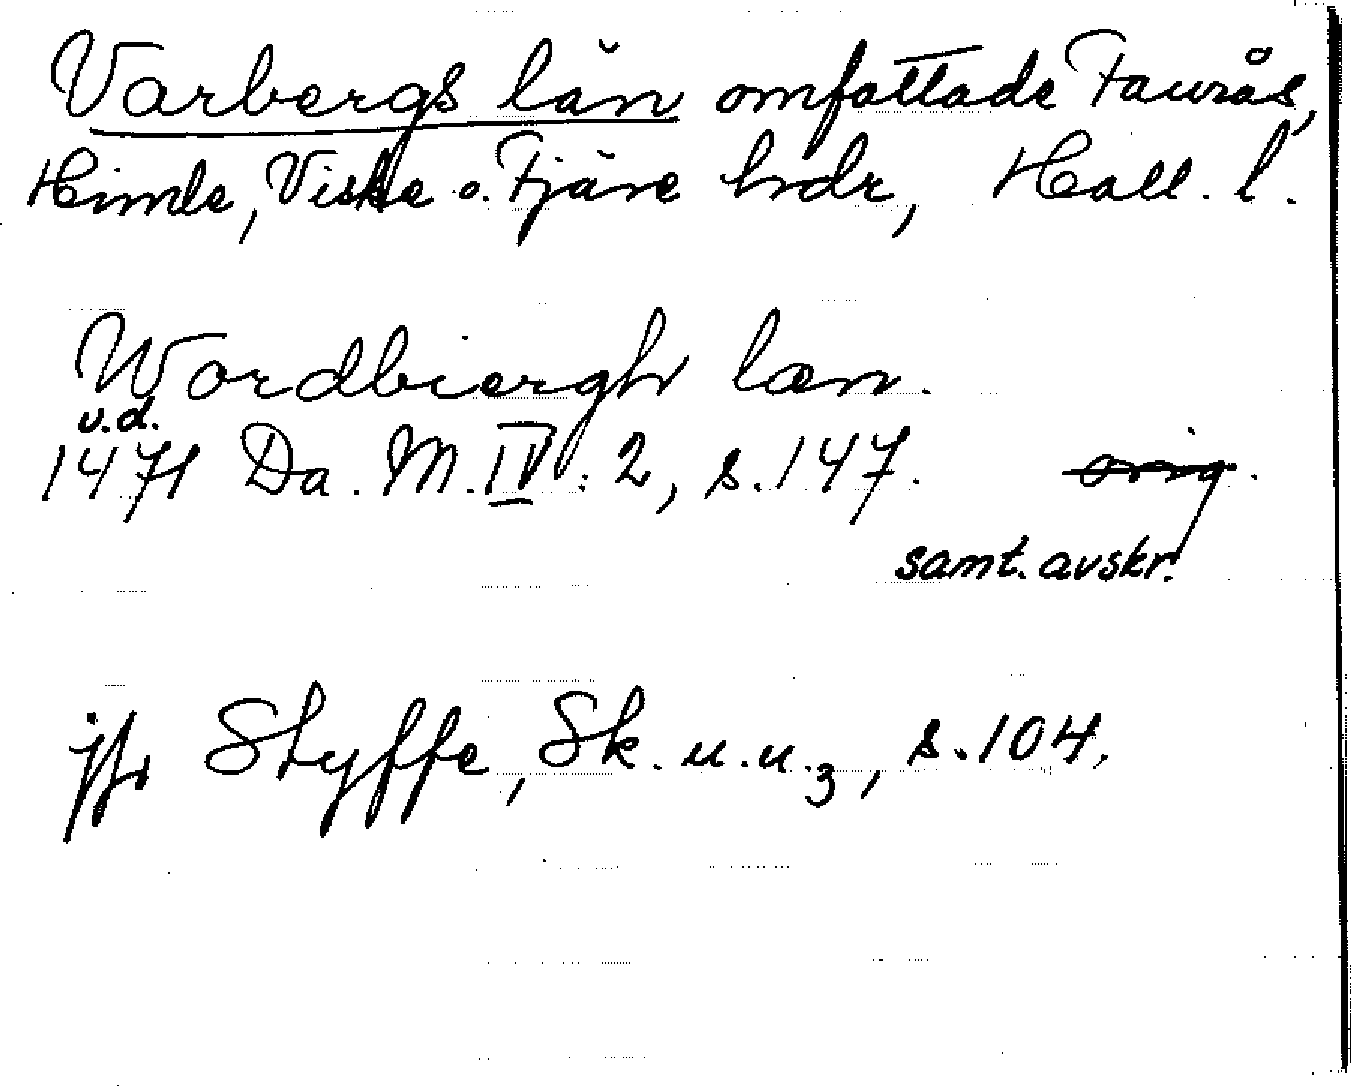 Varbergs län omfattade Faurås,
Himle, Viske o. Fjäre hrdr, Hall. l.
Wordbiergh læn.
u.d.
1471 Da. M. IV: 2, s. 147. orig.
samt. avskr.
jfr Styffe, Sk. u. u. 3, s. 104.